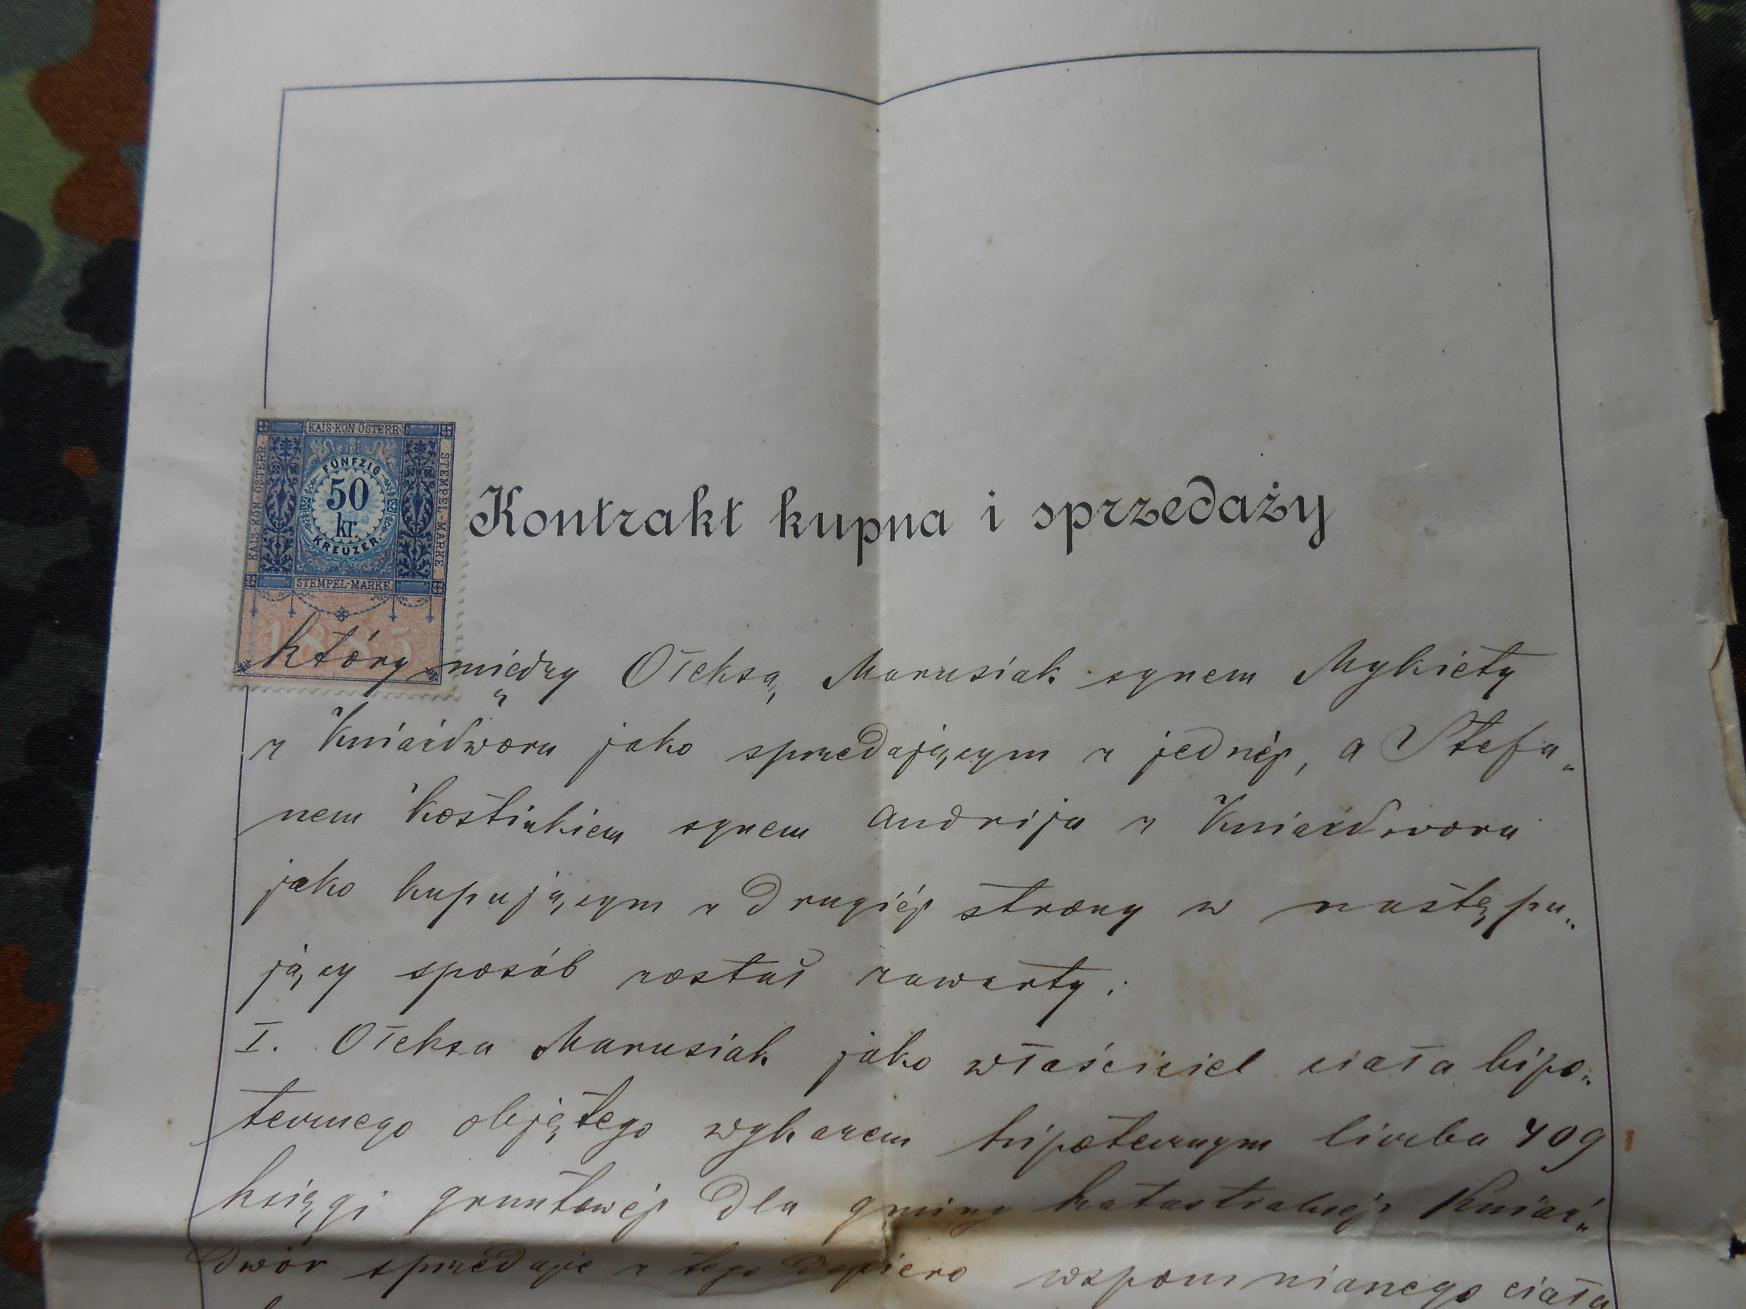 KAIS·KÖN·ÖSTERR·
KAIS·KÖN·ÖSTERR·
STEMPEL-MARKE
FÜNFZIG
50
kr.
KREUZER
STEMPEL-MARKE
1885
Kontrakt kupna i sprzedaży
który między Ołeksą Marusiak synem Mykiety
z Kniaźdwora jako sprzedającym z jednéj, a Stefa„
nem Kostiukiem synem Andrija z Kniaźdwora
jako kupującym z drugiéj strony w nastepu„
jący sposób został zawarty:
I. Ołeksa Marusiak jako właściciel ciała hipo„
tecznego objętego wykazem hipotecznym liczba 409
księgi gruntowéj dla gminy katastralnéj Kniaź„
dwór sprzedaje z tego dopiero wspomnianego ciała